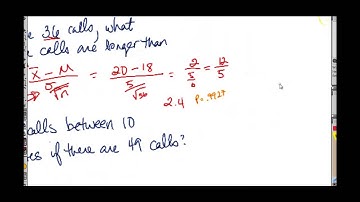 36 calls, what
calls are longer than
x̄ - M / σ/√n = 20 - 18 / 5/√36 = 2 / 5/6 = 12/5
2.4 P = .9927
calls between 10
if there are 49 calls?